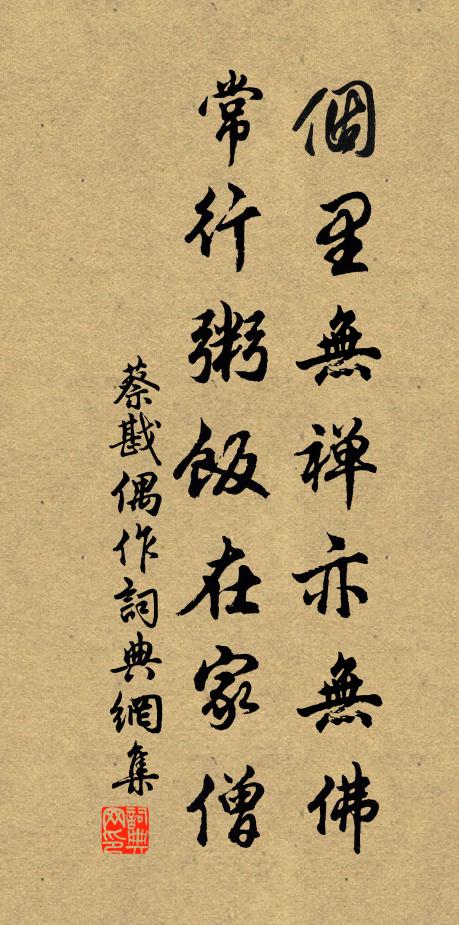 個里無禅亦無佛
常行粥飯在家僧
蔡戡偶作詞典網集
詞典网印